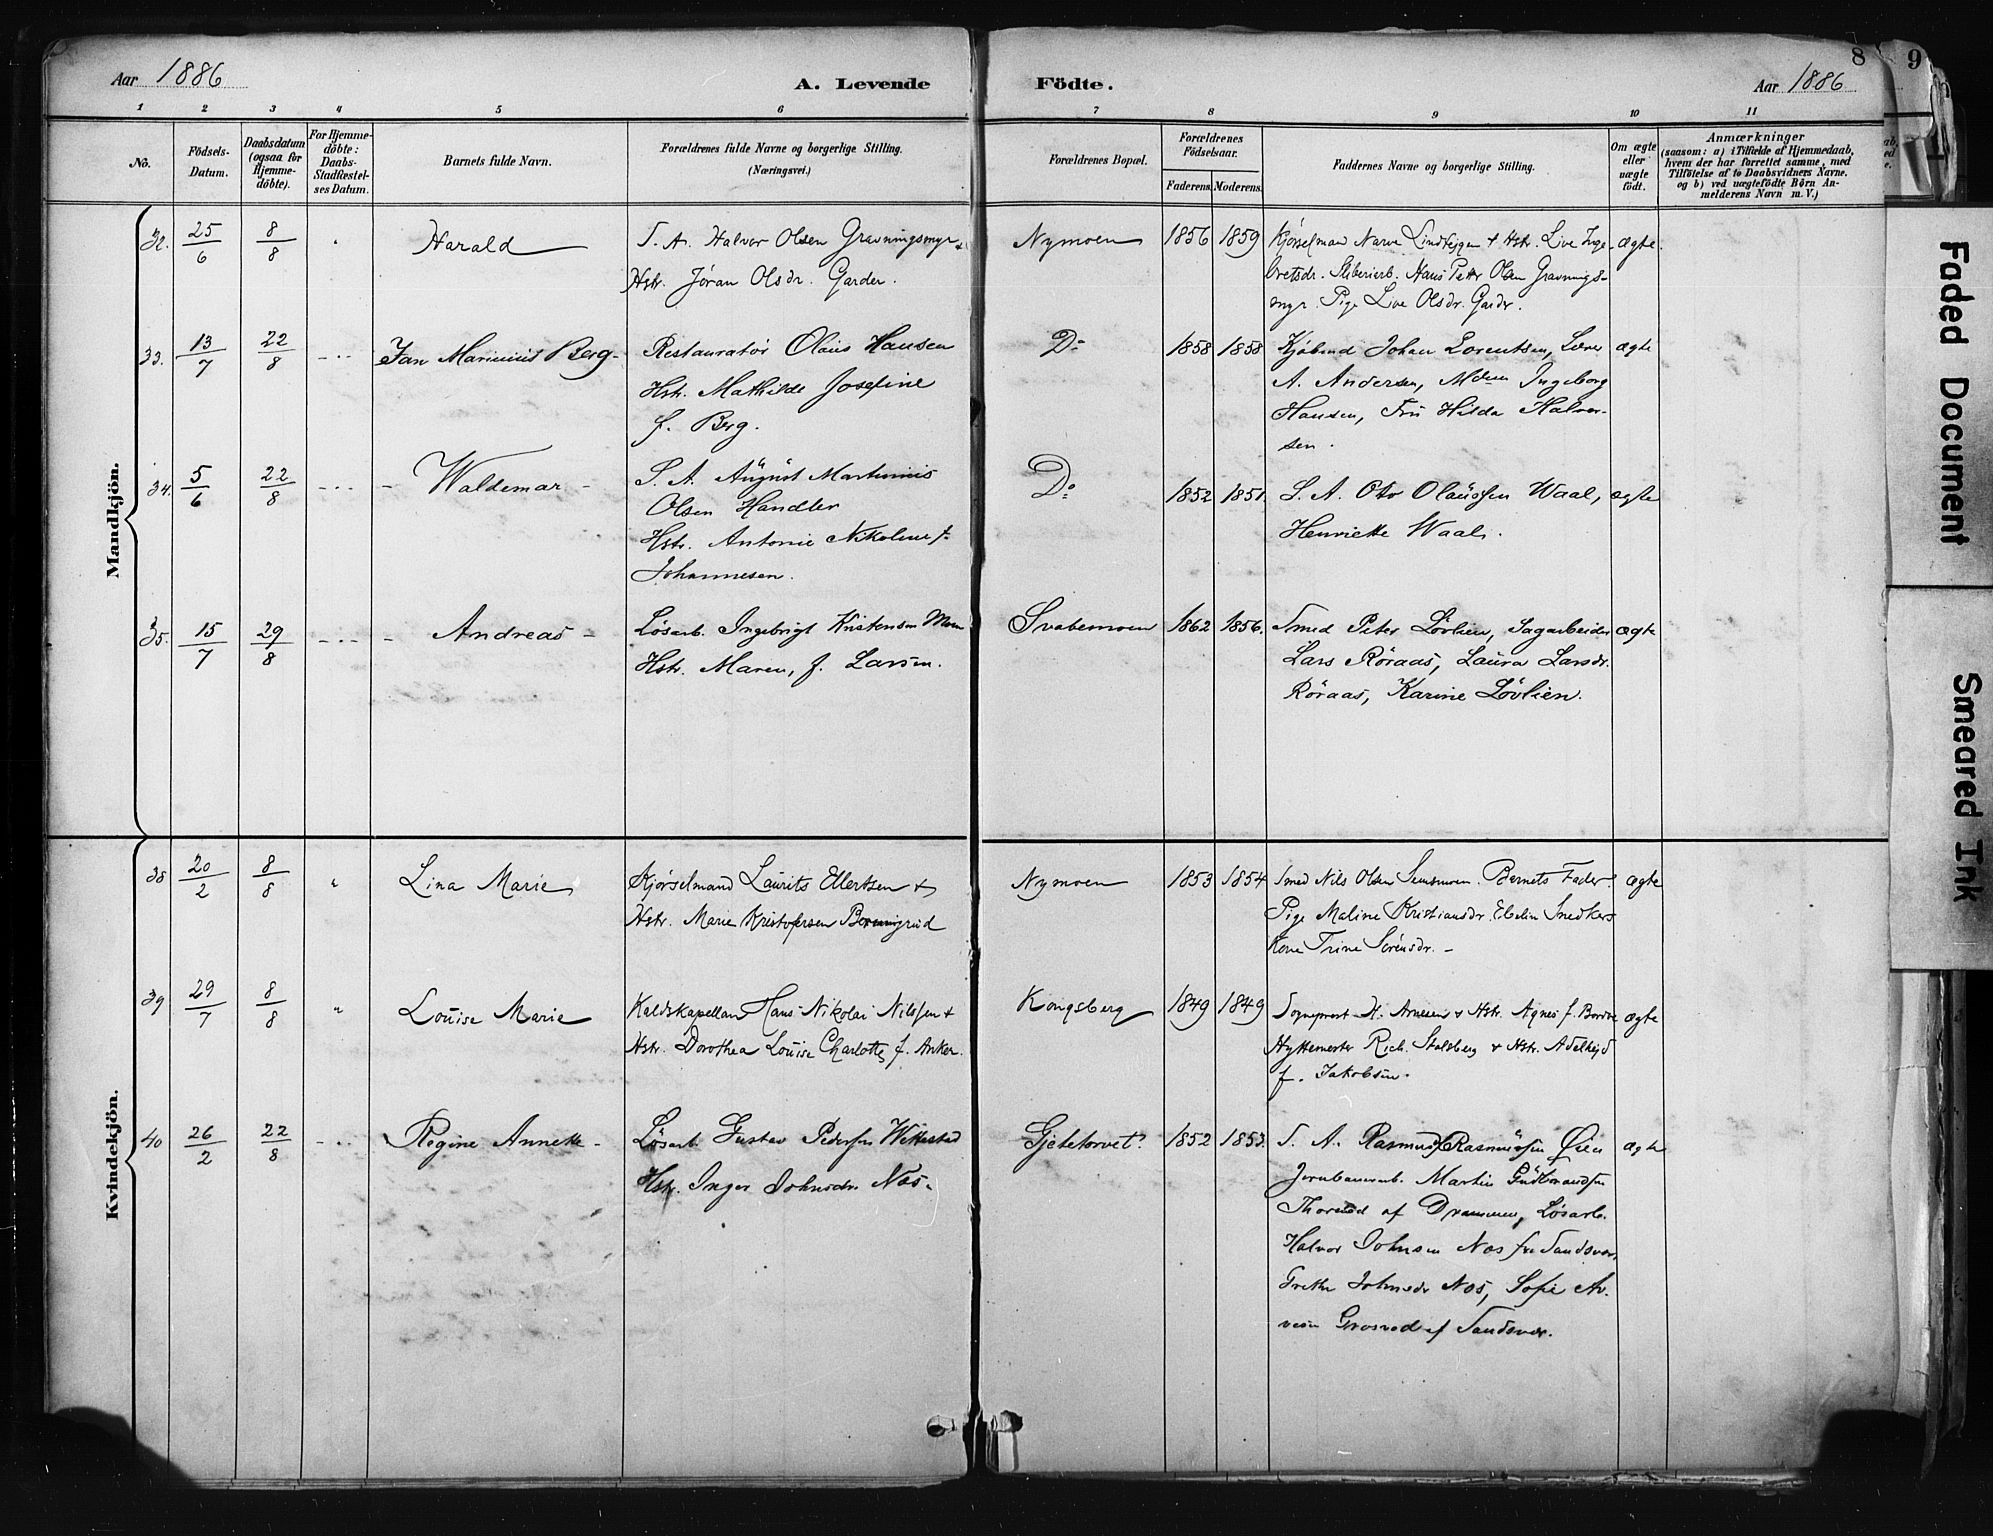 Aar 1886
A. Levende
Födte.
8
Aar 1886
9
1 2 3 4 5 6 7 8 9 10 11
No.
Födsels-
Datum.
Daabsdatum
(ogsaa for
Hjemme-
döbte).
For Hjemme-
döbte:
Daabs-
Stadfæstel-
ses Datum.
Barnets fulde Navn.
Forældrenes fulde Navne og borgerlige Stilling.
(Næringsvei.)
Forældrenes Bopæl.
Forældrenes
Födselsaar.
Faderens. Moderens.
Faddernes Navne og borgerlige Stilling.
Om ægte
eller
uægte
födt.
Anmærkninger
(saasom: a) i Tilfælde af Hjemmedaab,
hvem der har forrettet samme, med
Tilföielse af to Daabsvidners Navne.
og b) ved uægtefödte Börn An-
melderens Navn m. V.)
Mandkjön.
32. 25/6 8/8 " Harald
S. A. Halvor Olsen Gravningsmyr +
Hstr. Jöran Olsdr. Garder.
Nymoen 1856 1859
Kjörselmand Narve + Hstr. Live Inge-
bretsdr. Hans Petter Olsen Gravnings-
myr. Pige Live Olsdr. Garder.
ægte.
33. 13/7 22/8 Jan Marinius Berg
Restauratör Olaus Hansen
Hstr. Mathilde Josefine
f. Berg.
Do 1858 1858
Kjöbmd Johan Lorentsen, Lærer
A. Andersen, Mdm Ingeborg
Hansen, Fru Hilda Halvor-
sen.
ægte
34. 5/6 22/8 Waldemar
S. A. August Martinius
Olsen Handler
Hstr. Antonie Nikoline f.
Johannesen.
Do 1852 1851.
S. A. Otto Olaussen Waal,
Henriette Waal.
ægte
35. 15/7 29/8 Andreas
Lösarb. Ingebrigt Kristensen Moen
Hstr. Maren, f. Larsen.
Svabemoen 1862 1856.
Smed Peter Lövlien, Sagarbeider
Lars Röraas, Laura Larsdr.
Röraas, Karine Lövlien.
ægte
Kvindekjön.
38 20/2 8/8 " Lina Marie
Kjörselmand Laurits Ellertsen +
Hstr. Marie Kristofersen
Nymoen 1853 1854
Smed Nils Olsen Barnets Fader.
Pige Maline Kristiansdr. Snedkers
Kone Trine Sörensdr. -
ægte
39 29/7 8/8 " Louise Marie
Kaldskapellan Hans Nikolai Nilssen +
Hstr. Dorothea Louise Charlotte f. Anker.
Kongsberg 1849 1849
Sogneprest H. Arnesen + Hstr. Agnes f.
Hyttemester Rich. Stalsberg + Hstr. Adelheid
f. Jakobsen.
ægte
40 26/2 22/8 Regine Annette
Lösarb. Gustav Pedersen Wettestad
Hstr. Inger Johnsdr. Næs.
Gjetetorvet. 1852 1853.
S. A. Rasmus Rasmussen Öien
Jernbanearb. Martin Gudbrandsen
af Drammen, Lösarb.
Halvor Johnsen Næs fra Sandsvær,
Grethe Johnsdr Næs, Sofie
af Sandsvær.
ægte
Faded Document
Smeared Ink